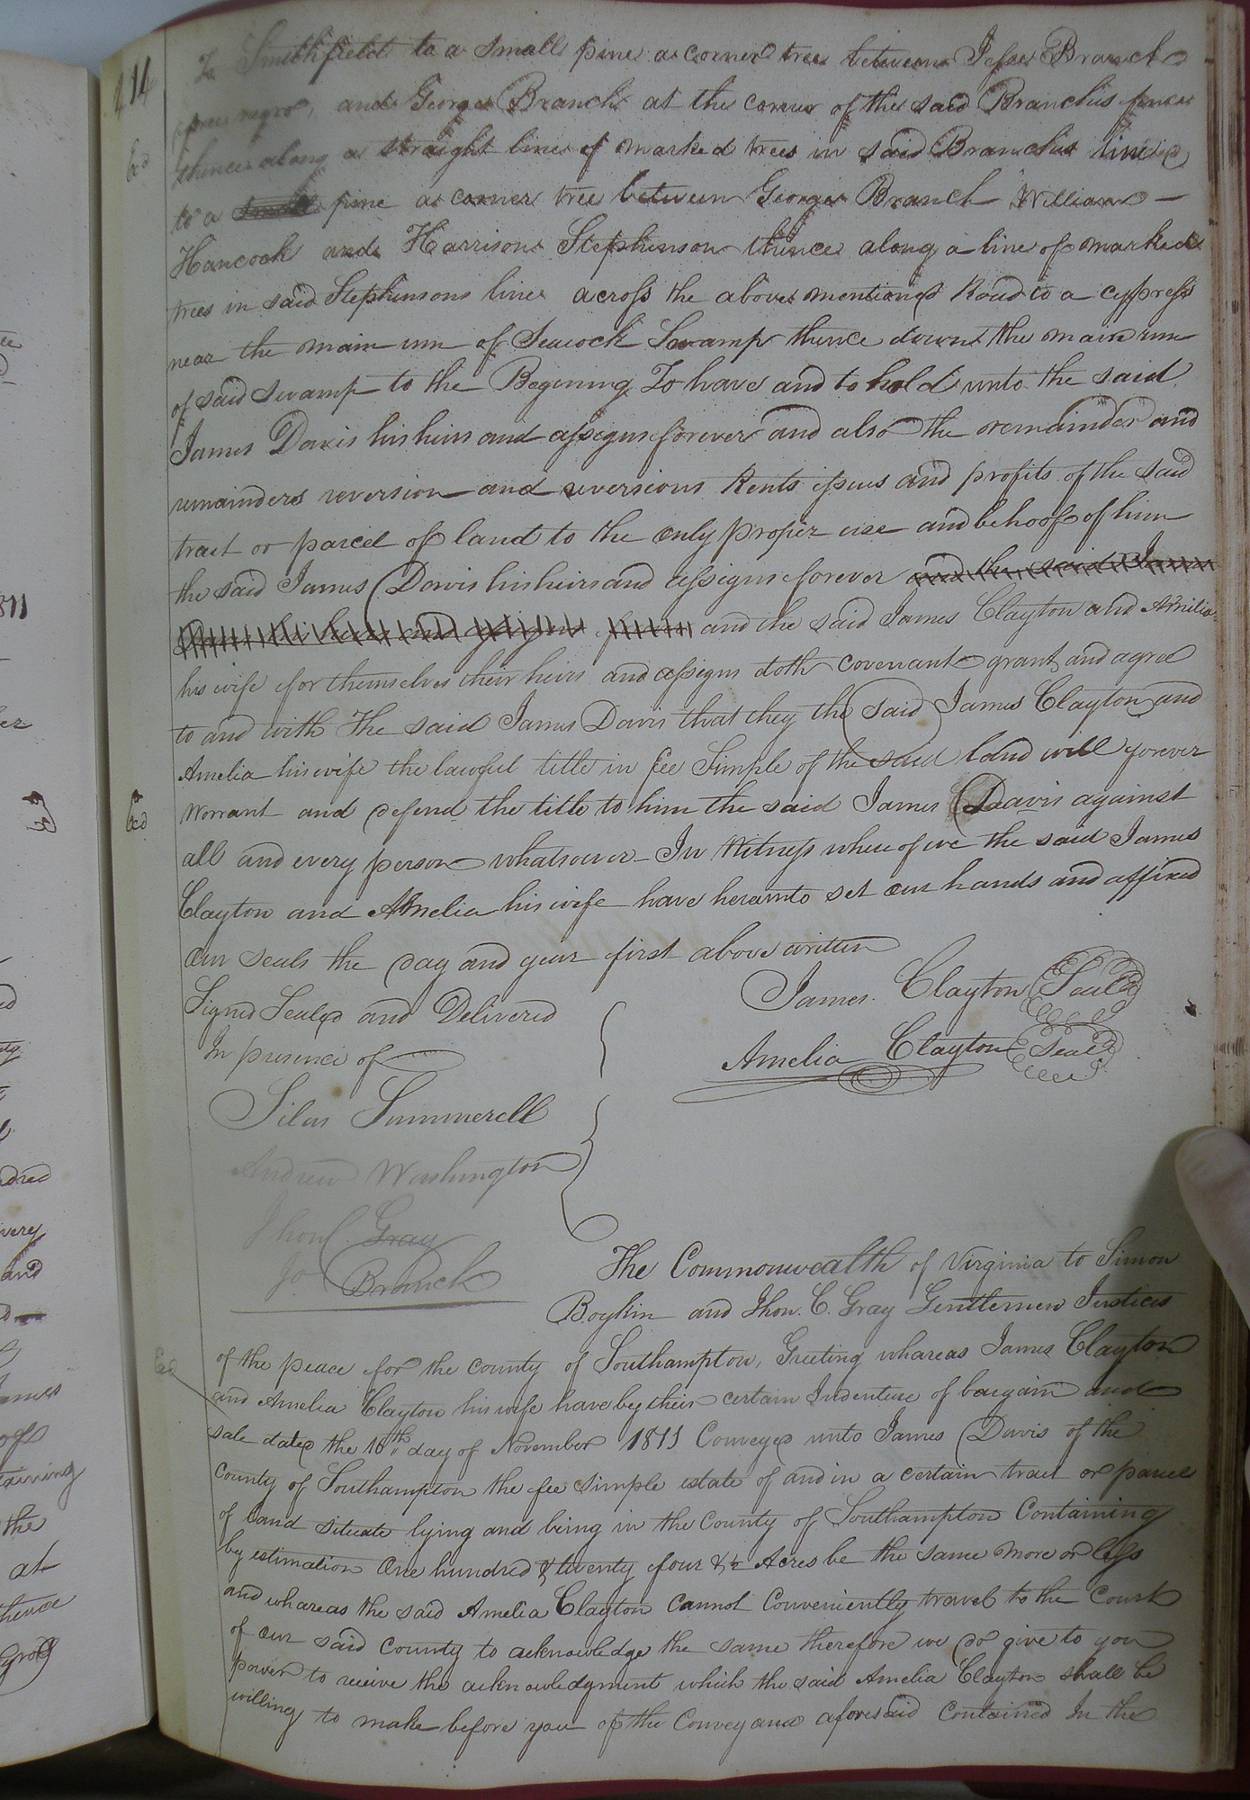 414
To Smithfield to a small pine a corner tree between Jesse Branch
free negro, and George Branch at the corner of the said Branch's fence
thence along a straight line of marked trees in said Branchs line
to a small pine a corner tree between George Branch William
Hancock and Harrison Stephenson thence along a line of marked
trees in said Stephensons line across the above mentioned Road to a cypress
near the main run of Seacock Swamp thence down the main run
of said swamp to the Begining To have and to hold unto the said
James Davis his heirs and assigns forever and also the remainder and
remainders reversion and reversions Rents issues and profits of the said
tract or parcel of land to the only proper use and behoof of him
the said James Davis his heirs and assigns forever and the said James
Davis his heirs and assigns forever and the said James Clayton and Amelia
his wife for themselves their heirs and assigns doth covenant grant and agree
to and with the said James Davis that they the said James Clayton and
Amelia his wife the lawful title in fee Simple of the said land will forever
Warrant and defend the title to him the said James Davis against
all and every person whatsoever In Witness whereof we the said James
Clayton and Amelia his wife have hereunto set our hands and affixed
our seals the day and year first above written
Signed Sealed and Delivered
In presence of
James Clayton Seal
Amelia Clayton Seal
Silas Summerell
Andrew Washington
Jhon C. Gray
Jo Branch
The Commonwealth of Virginia to Simon
Boykin and Jhon. C. Gray Gentlemen Justices
of the peace for the county of Southampton, Greeting whareas James Clayton
and Amelia Clayton his wife have by their certain Indenture of bargain and
sale dated the 16th day of November 1811 Conveyed unto James Davis of the
County of Southampton the fee simple estate of and in a certain tract or parcel
of land situate lying and being in the County of Southampton Containing
by estimation One hundred & twenty four & ½ Acres be the same more or less
and whareas the said Amelia Clayton cannot Conveniently travel to the Court
of our said County to acknowledge the same therefore we do give to you
power to receive the acknowledgment which the said Amelia Clayton shall be
willing to make before you of the Conveyance aforesaid Contained In the